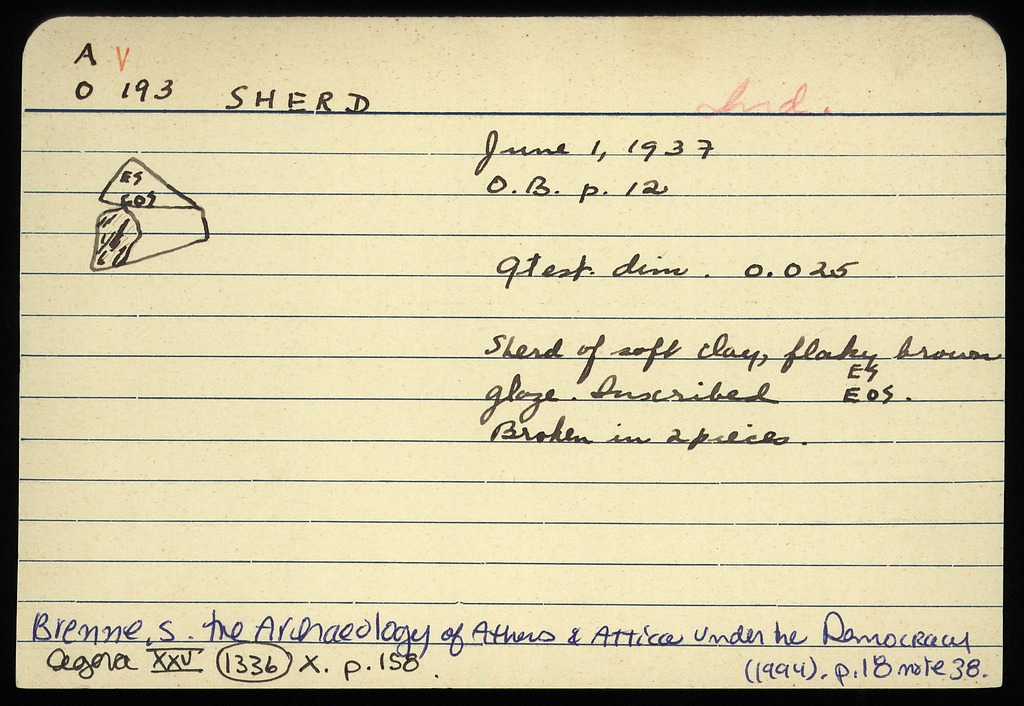 A V
O 193 SHERD
Ind.
June 1, 1937
O.B. p. 12
ES
EOS
Gtest. dim. 0.025
Sherd of soft clay, flaky brown
ES
glaze. Inscribed EOS.
Broken in 2 pieces.
Brenne, S. The Archaeology of Athens & Attica under the Democracy
(1994). p.18 note 38.
Agora XXV 1336 X. p. 158.